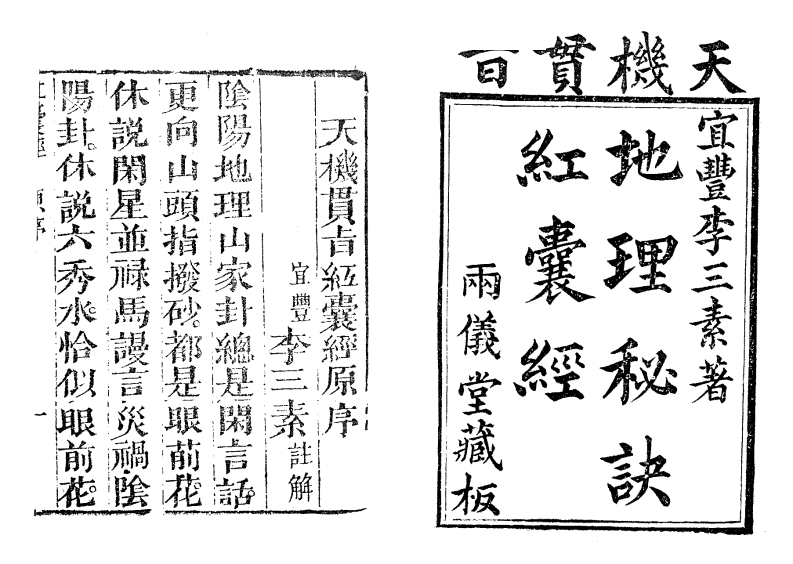 天機貫旨
宜豐李三素著
地理秘訣
紅囊經
兩儀堂藏板
天機貫旨紅囊經原序
宜豐李三素註解
陰陽地理山家卦總是閑言話
更向山頭指撥砂。都是眼前花
休説閑星並祿馬謾言災禍陰
陽卦。休説六秀水。恰似眼前花。
原序
一